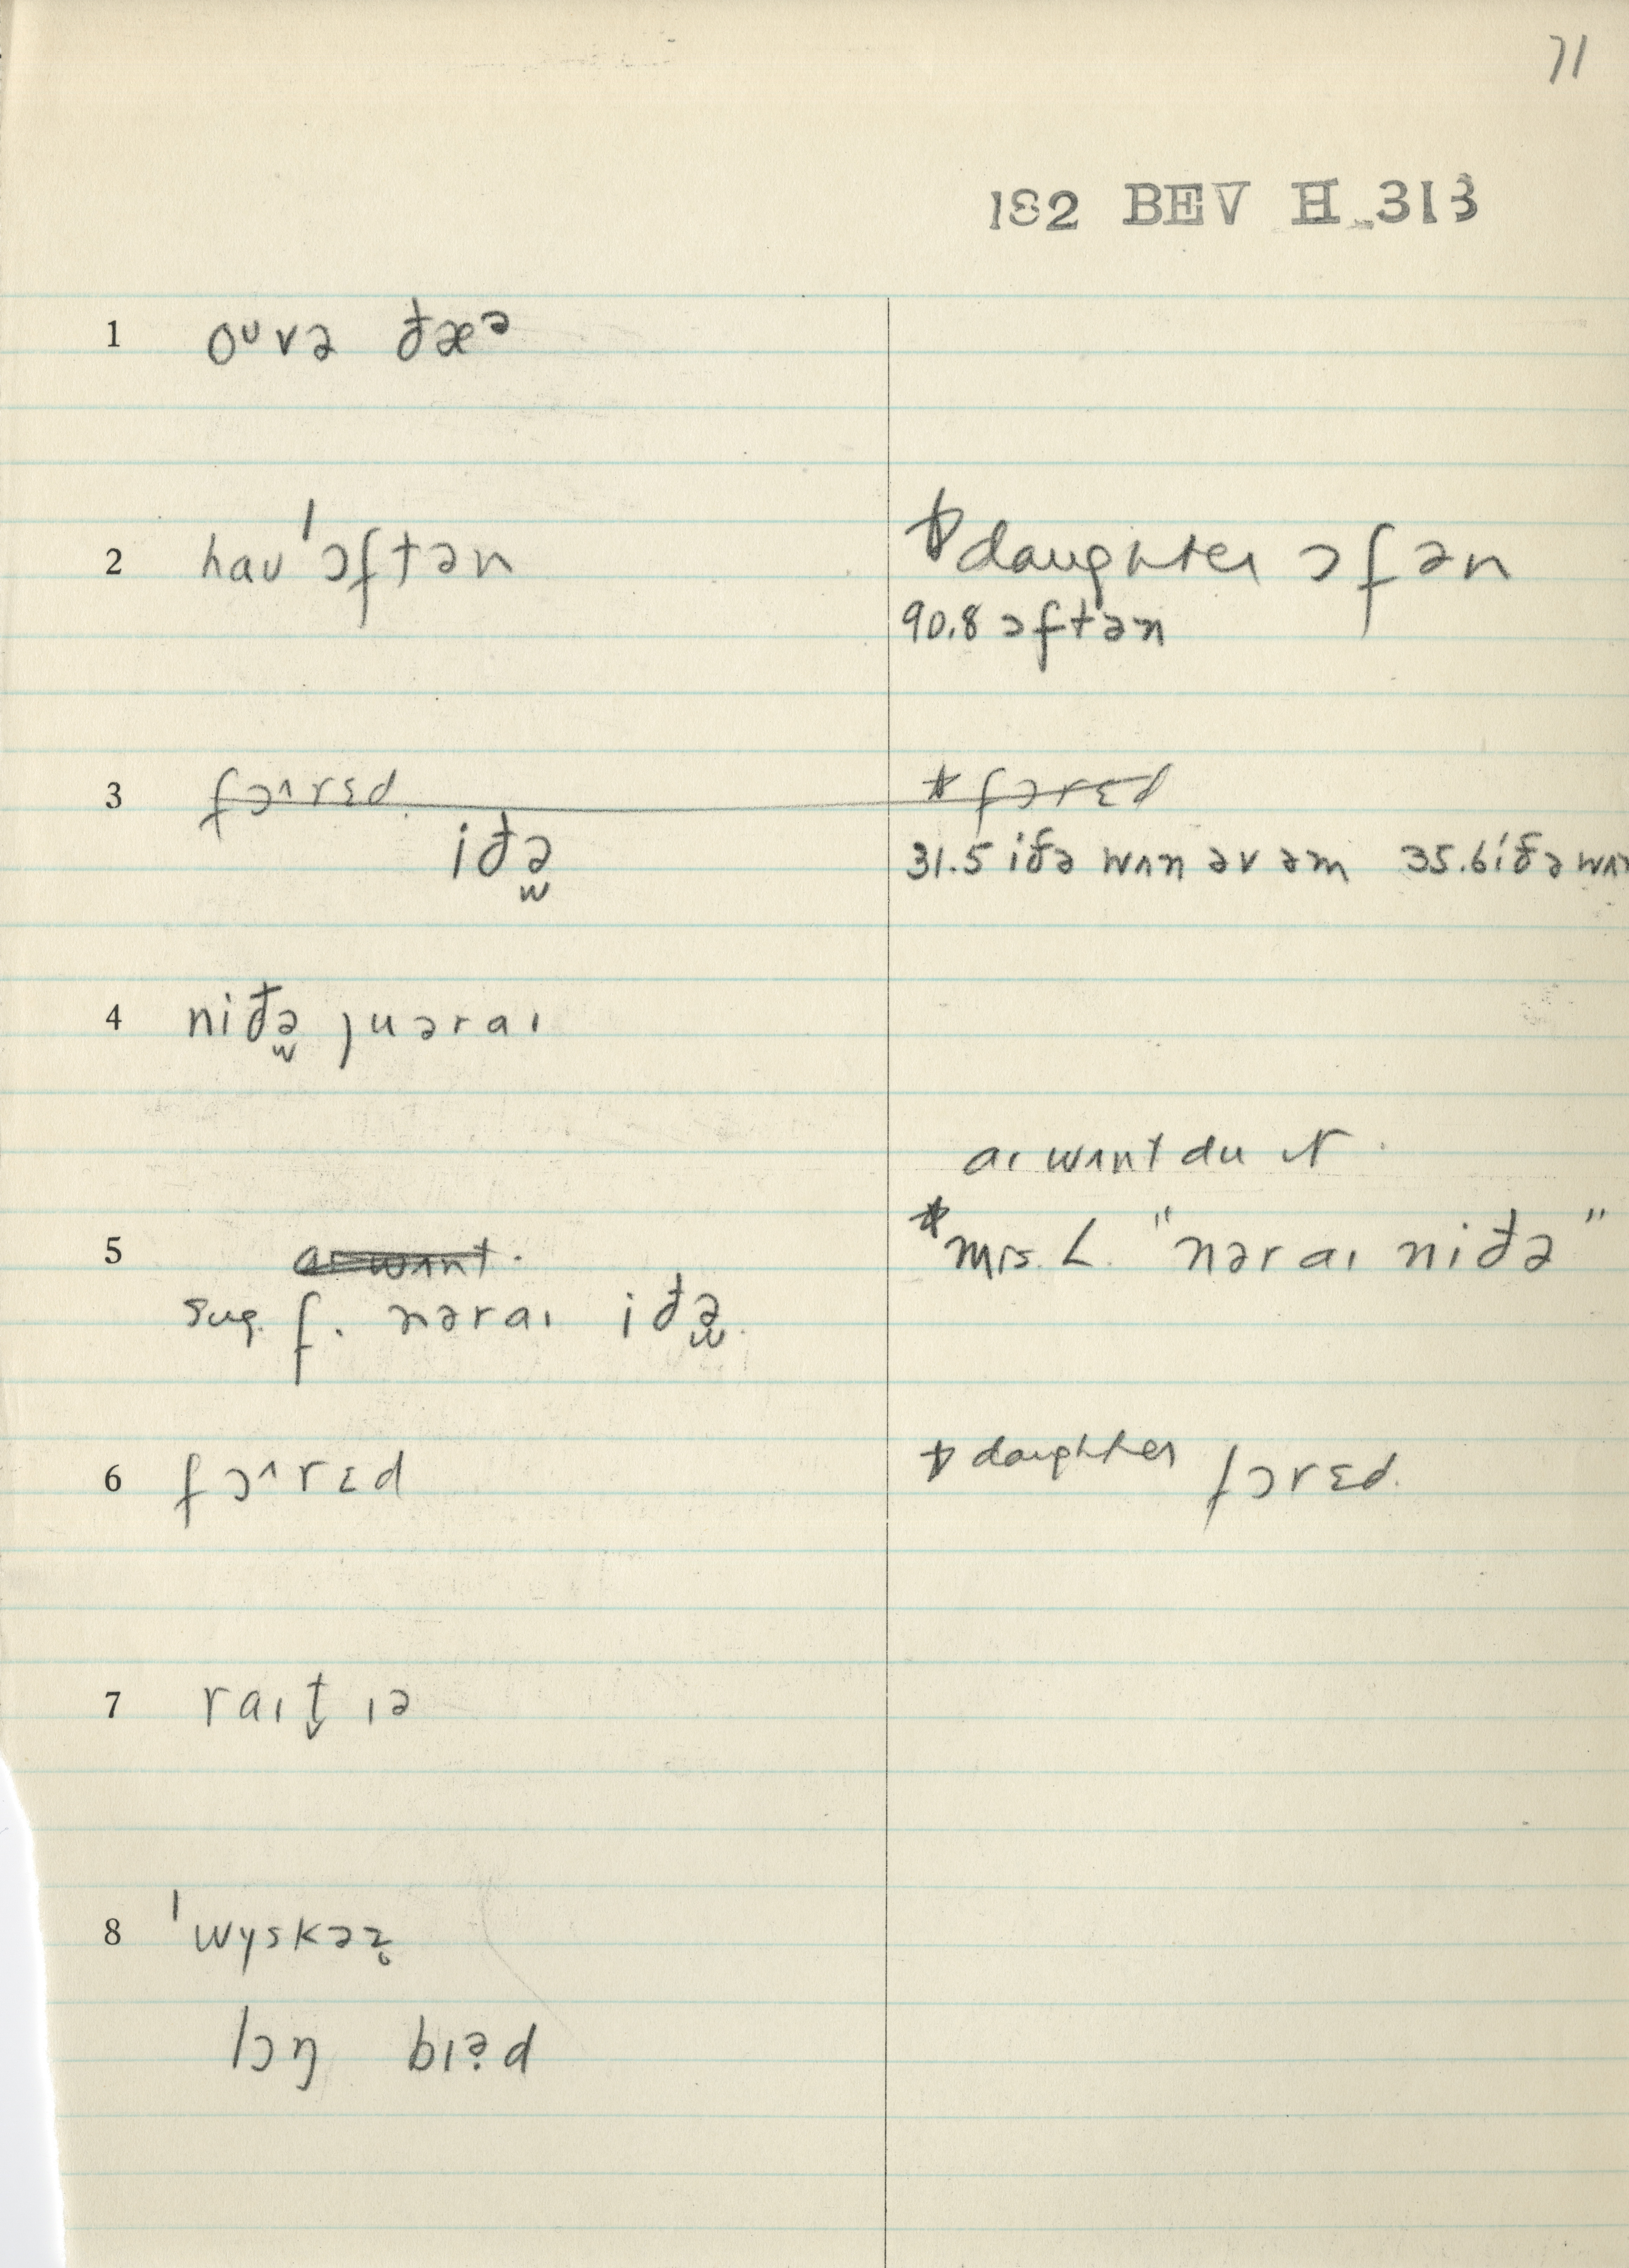 71
182 BEV H 313
1 oᶷvə ðæᵊ
2 haʊ'ɔftən
* daughter ɔfən
90.8 ɔftən
3 fɔ^rɛd * fɔrɛd
iðə̫
31.5 iðə wʌn əv əm 35.6 iðə wʌn
4 niðə̫ ȷuəraɪ
aɪ wʌnt du ɪt.
5 aɪ wʌnt. * Mrs. L. "nəraɪ niðə"
sug. f. nəraɪ iðə̫.
6 fɔ^rɛd * daughter fɔrɛd.
7 raɪt̬ ɪə
8 'wyskəz̥
lɔŋ bɪə̣d